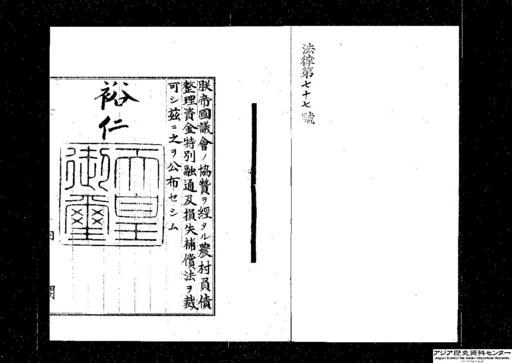 法律第七十七號
朕帝國議會ノ協贊ヲ經タル農村負債
整理資金特別融通及損失補償法ヲ裁
可シ茲ニ之ヲ公布セシム
裕仁
天皇
御璽
内
閣
アジア歴史資料センター
Japan Center for Asian Historical Records